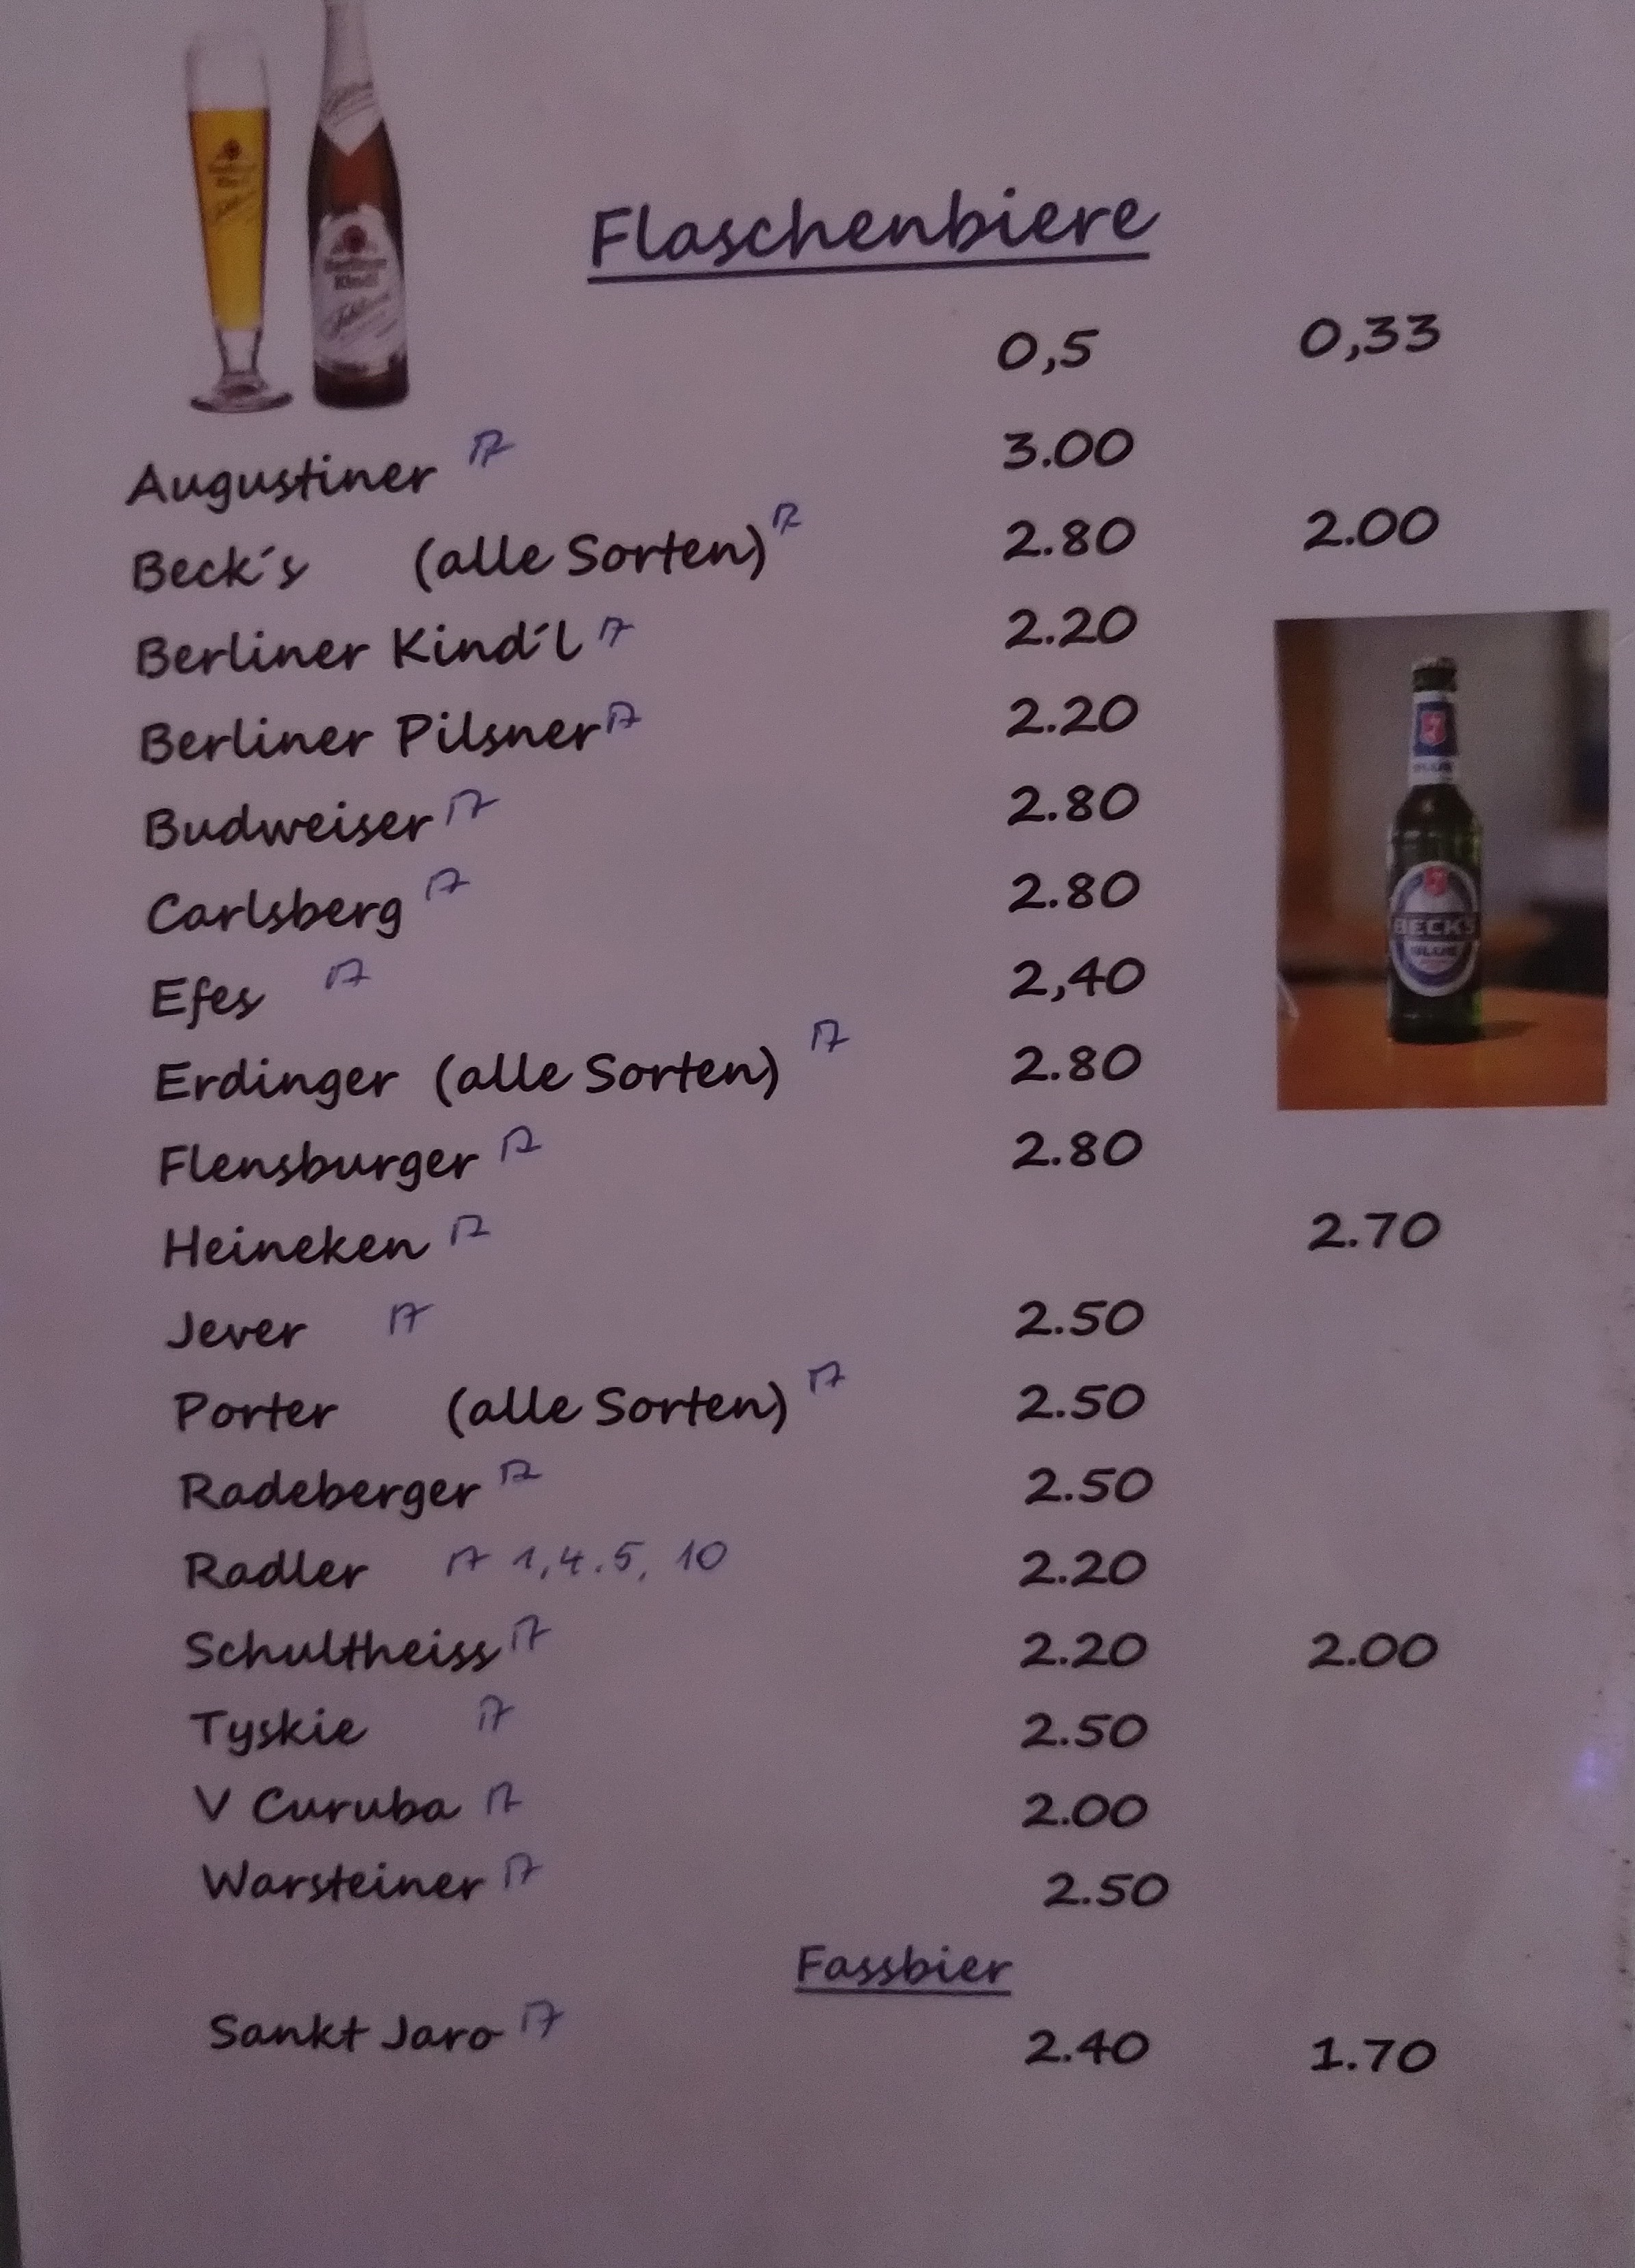 Flaschenbiere
0,5 0,33
Augustiner 17 3.00
Beck´s (alle Sorten) 17 2.80 2.00
Berliner Kind´l 17 2.20
Berliner Pilsner 17 2.20
Budweiser 17 2.80
Carlsberg 17 2.80
Efes 17 2,40
Erdinger (alle Sorten) 17 2.80
Flensburger 17 2.80
Heineken 17 2.70
Jever 17 2.50
Porter (alle Sorten) 17 2.50
Radeberger 17 2.50
Radler 17 1,4.5, 10 2.20
Schultheiss 17 2.20 2.00
Tyskie 17 2.50
V Curuba 17 2.00
Warsteiner 17 2.50
Fassbier
Sankt Jaro 17 2.40 1.70
BECK'S
BLUE